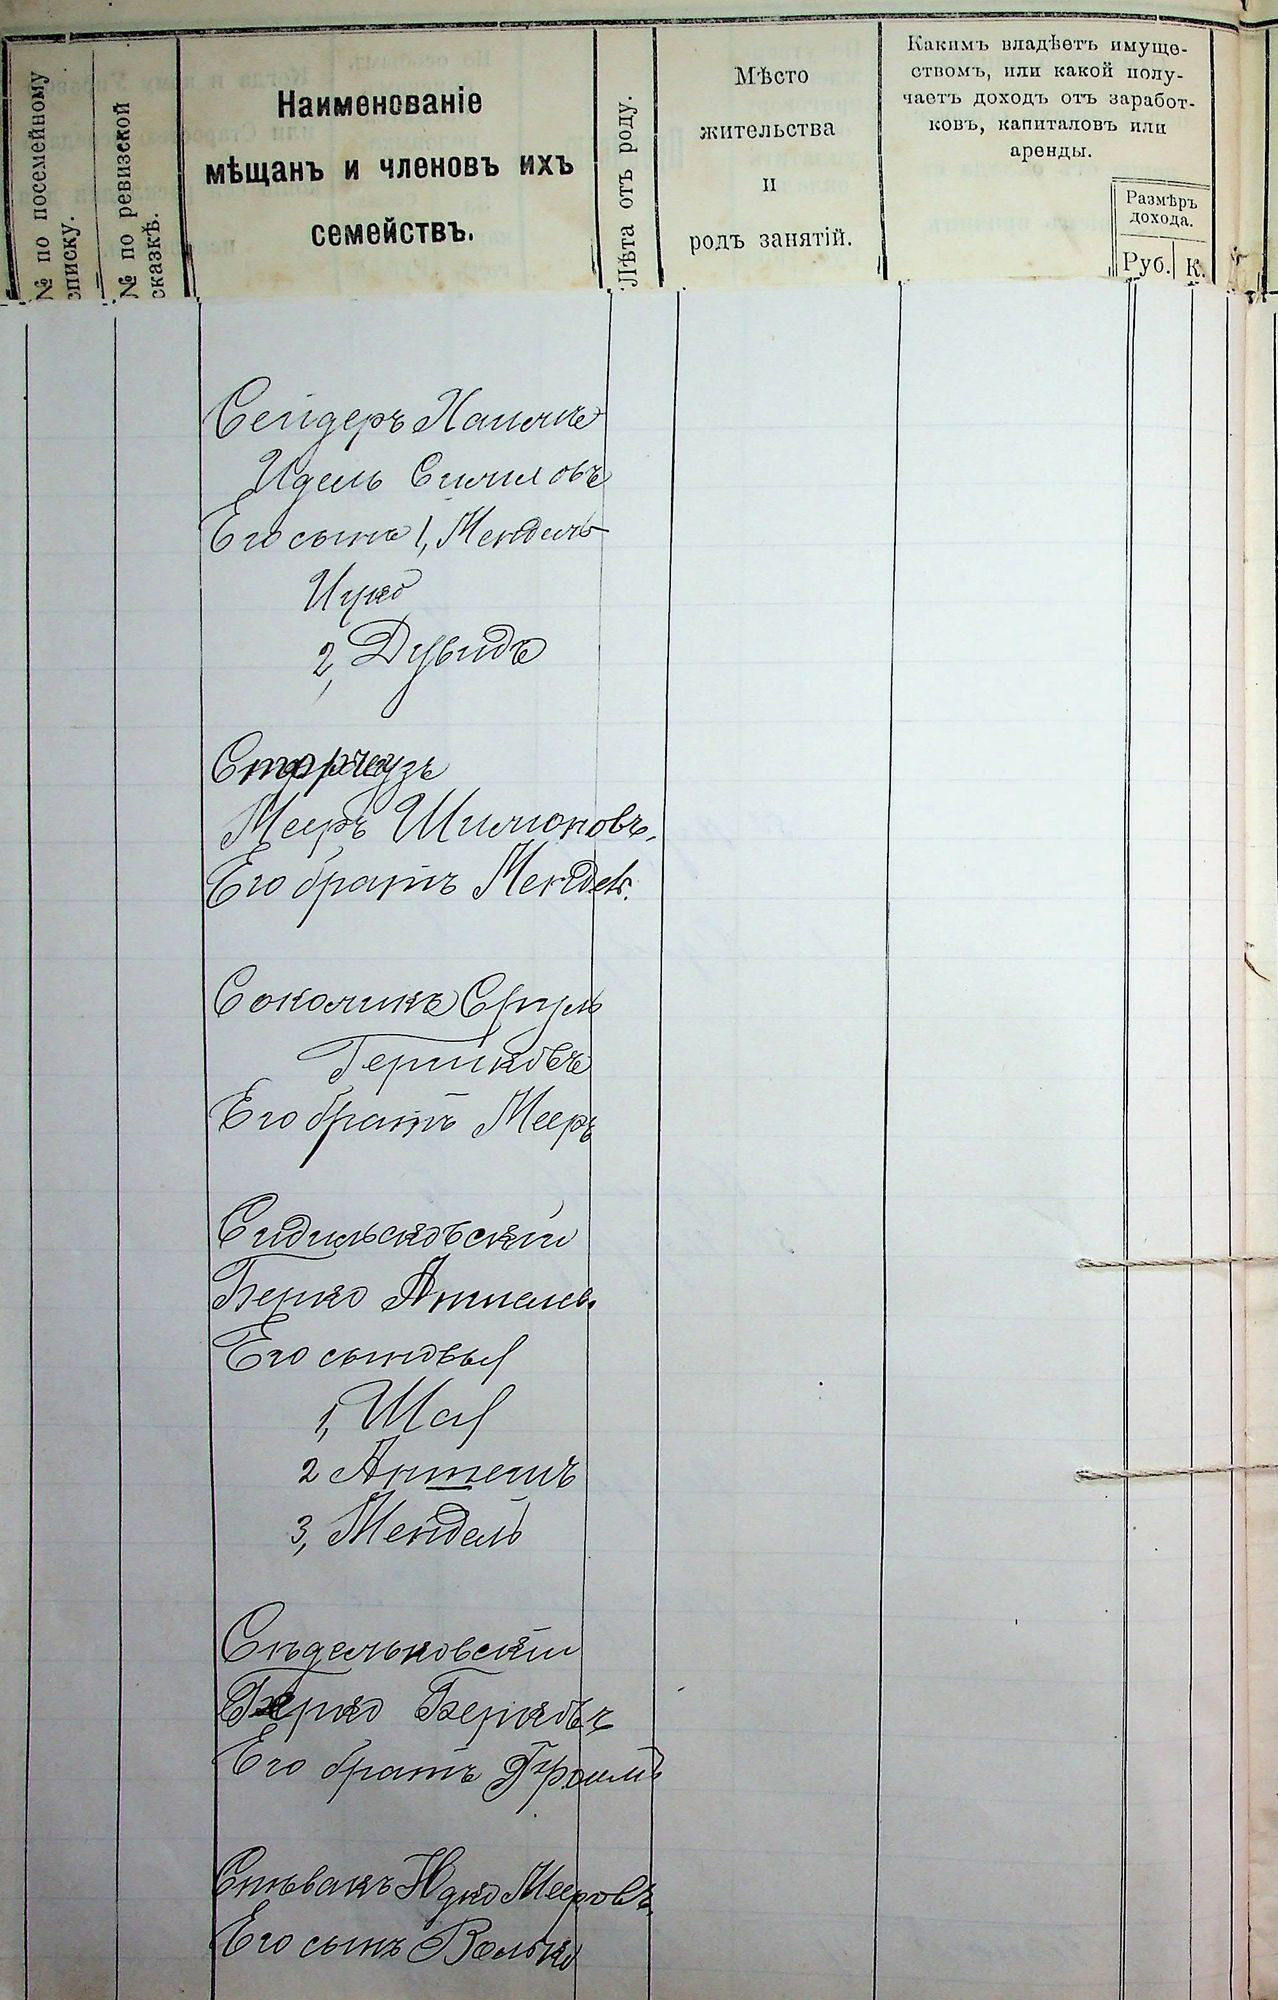 № по посемейному
списку.
№ по ревизской
сказкѣ.
Наименованіе
мѣщанъ и членовъ ихъ
семействъ.
Лѣта отъ роду.
Мѣсто
жительства
и
родъ занятій.
Какимъ владѣетъ имуще-
ствомъ, или какой полу-
чаетъ доходъ отъ заработ-
ковъ, капиталовъ или
аренды.
Размѣръ
дохода.
Руб.
К.
Идель
Его сынъ 1, Мендель
Ицко
2, Дувидъ
Мееръ Шимоновъ.
Его братъ Мендель.
Соколикъ Сруль
Гершковъ
Его братъ Мееръ
Сидильсковскій
Берко Аншелев.
Его сыновья
1, Шая
2 Аншель
3, Мендель
Сѣдельковскій
Берко Берковъ
Его братъ Фроимъ
Спѣвакъ Юдко Мееровъ.
Его сынъ Волько